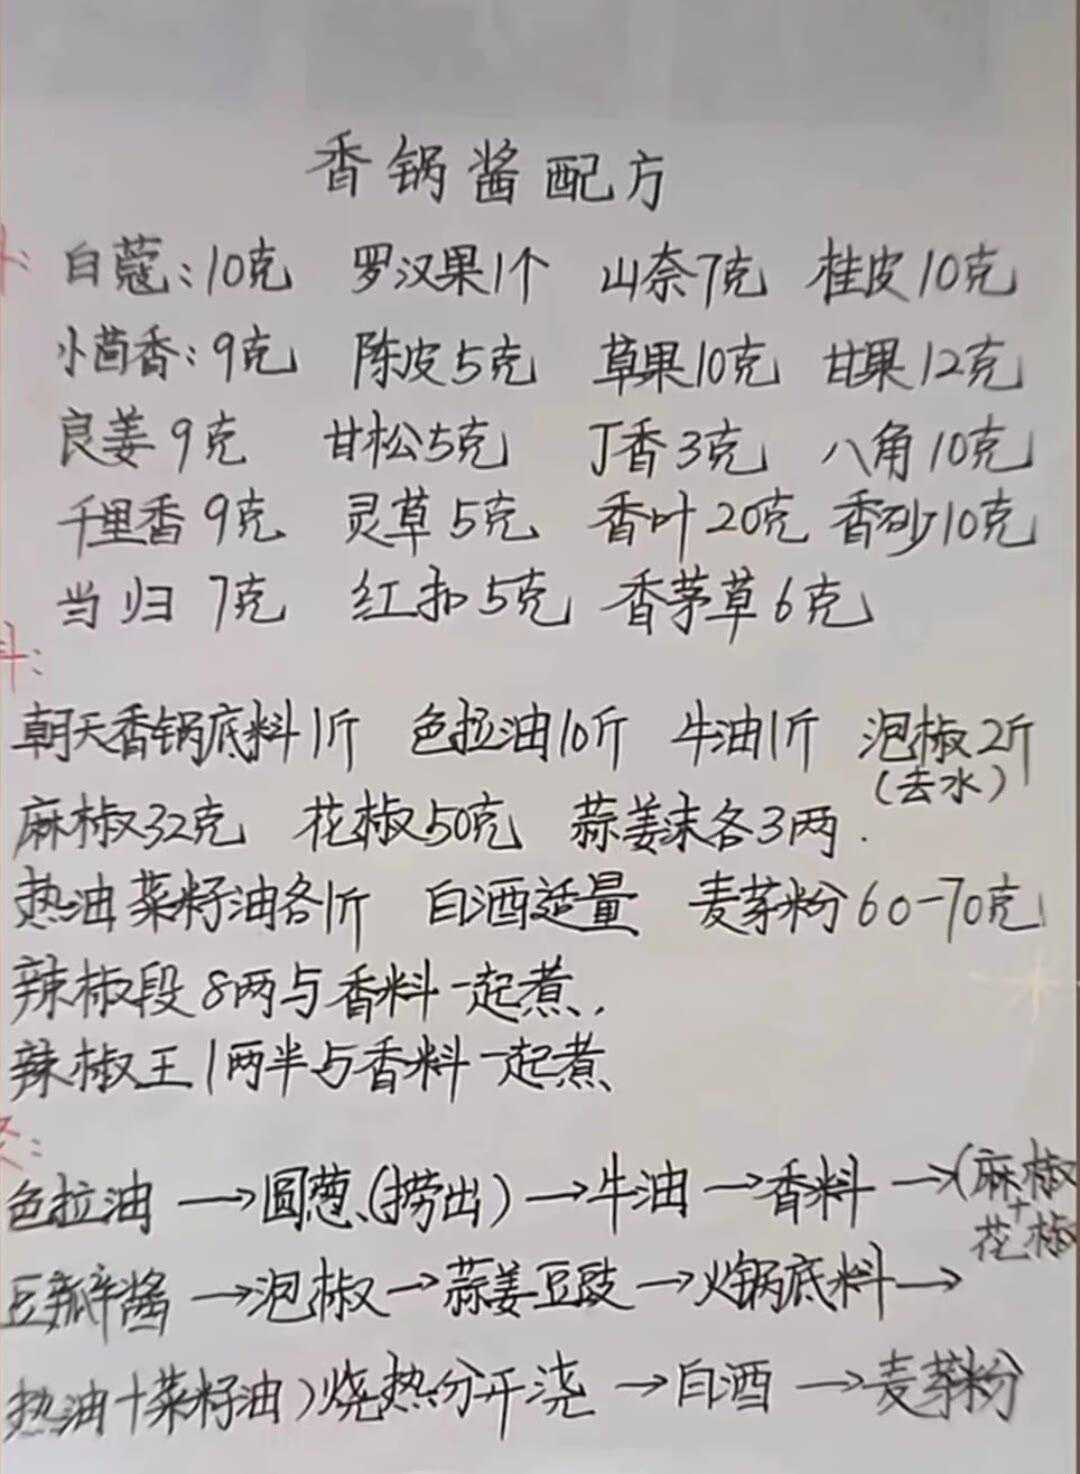 香锅酱配方
白蔻:10克 罗汉果1个 山奈7克 桂皮10克
小茴香:9克 陈皮5克 草果10克 甘果12克
良姜9克 甘松5克 丁香3克 八角10克
千里香9克 灵草5克 香叶20克 香砂10克
当归7克 红扣5克 香茅草6克
朝天香锅底料1斤 色拉油10斤 牛油1斤 泡椒2斤
(去水)
麻椒32克 花椒50克 蒜姜末各3两.
热油菜籽油各1斤 白酒适量 麦芽粉60-70克
辣椒段8两与香料一起煮.
辣椒王1两半与香料一起煮
色拉油→圆葱(捞出)→牛油→香料→(麻椒
+
花椒
豆瓣酱→泡椒→蒜姜豆豉→火锅底料→
热油+菜籽油)烧热分开浇→白酒→麦芽粉